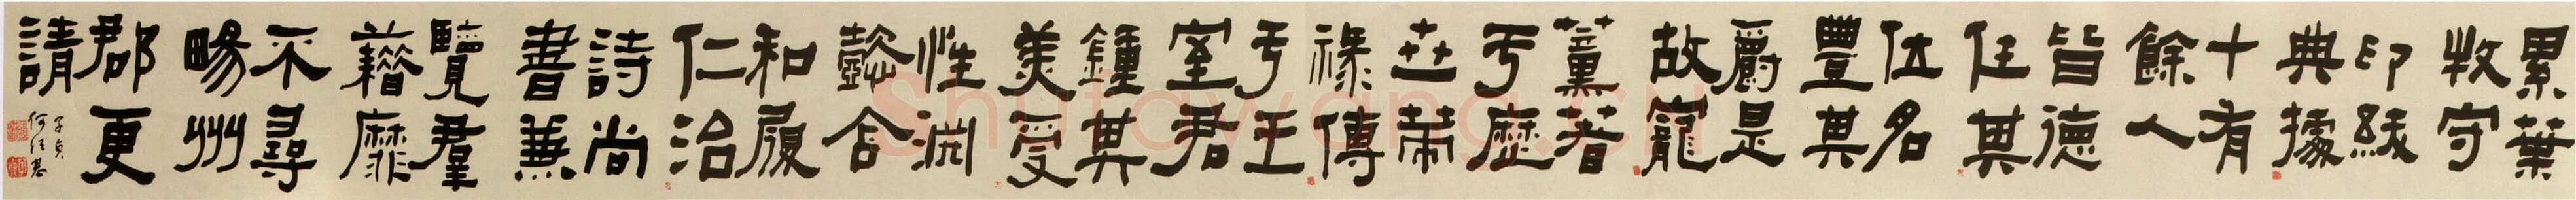 累葉
牧守
印紱
典據
十有
餘人
皆德
任其
位名
豐其
爵是
故寵
薰著
于歷
世策
祿傳
于王
室君
鍾其
美受
性淵
懿含
和履
仁治
詩尚
書兼
覽羣
藉靡
不尋
暘州
郡更
請
子貞
何紹基
Shufawang.CN